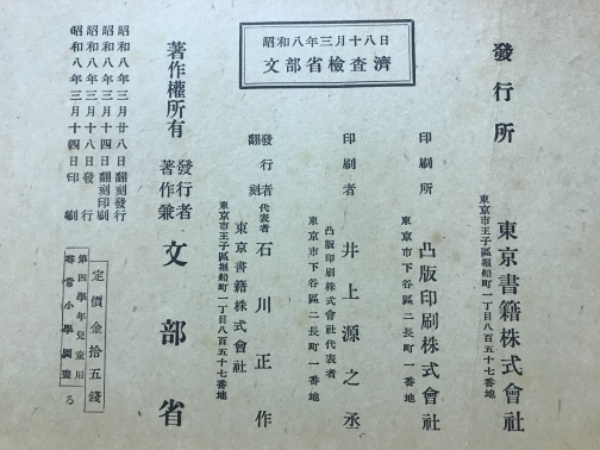 昭和八年三月十八日
文部省檢査濟
發行所 東京書籍株式會社
東京市王子區堀船町一丁目八百五十七番地
印刷所 凸版印刷株式會社
東京市下谷區二長町一番地
印刷者 井上源之丞
凸版印刷株式會社代表者
東京市下谷區二長町一番地
翻刻發行者 代表者 石川正作
東京書籍株式會社
東京市王子區堀船町一丁目八百五十七番地
著作權所有 著作兼發行者 文部省
昭和八年三月廿八日翻刻發行
昭和八年三月十四日翻刻印刷
昭和八年三月十八日發行
昭和八年三月十四日印刷
定價金拾五錢
第四學年兒童用
尋常小學